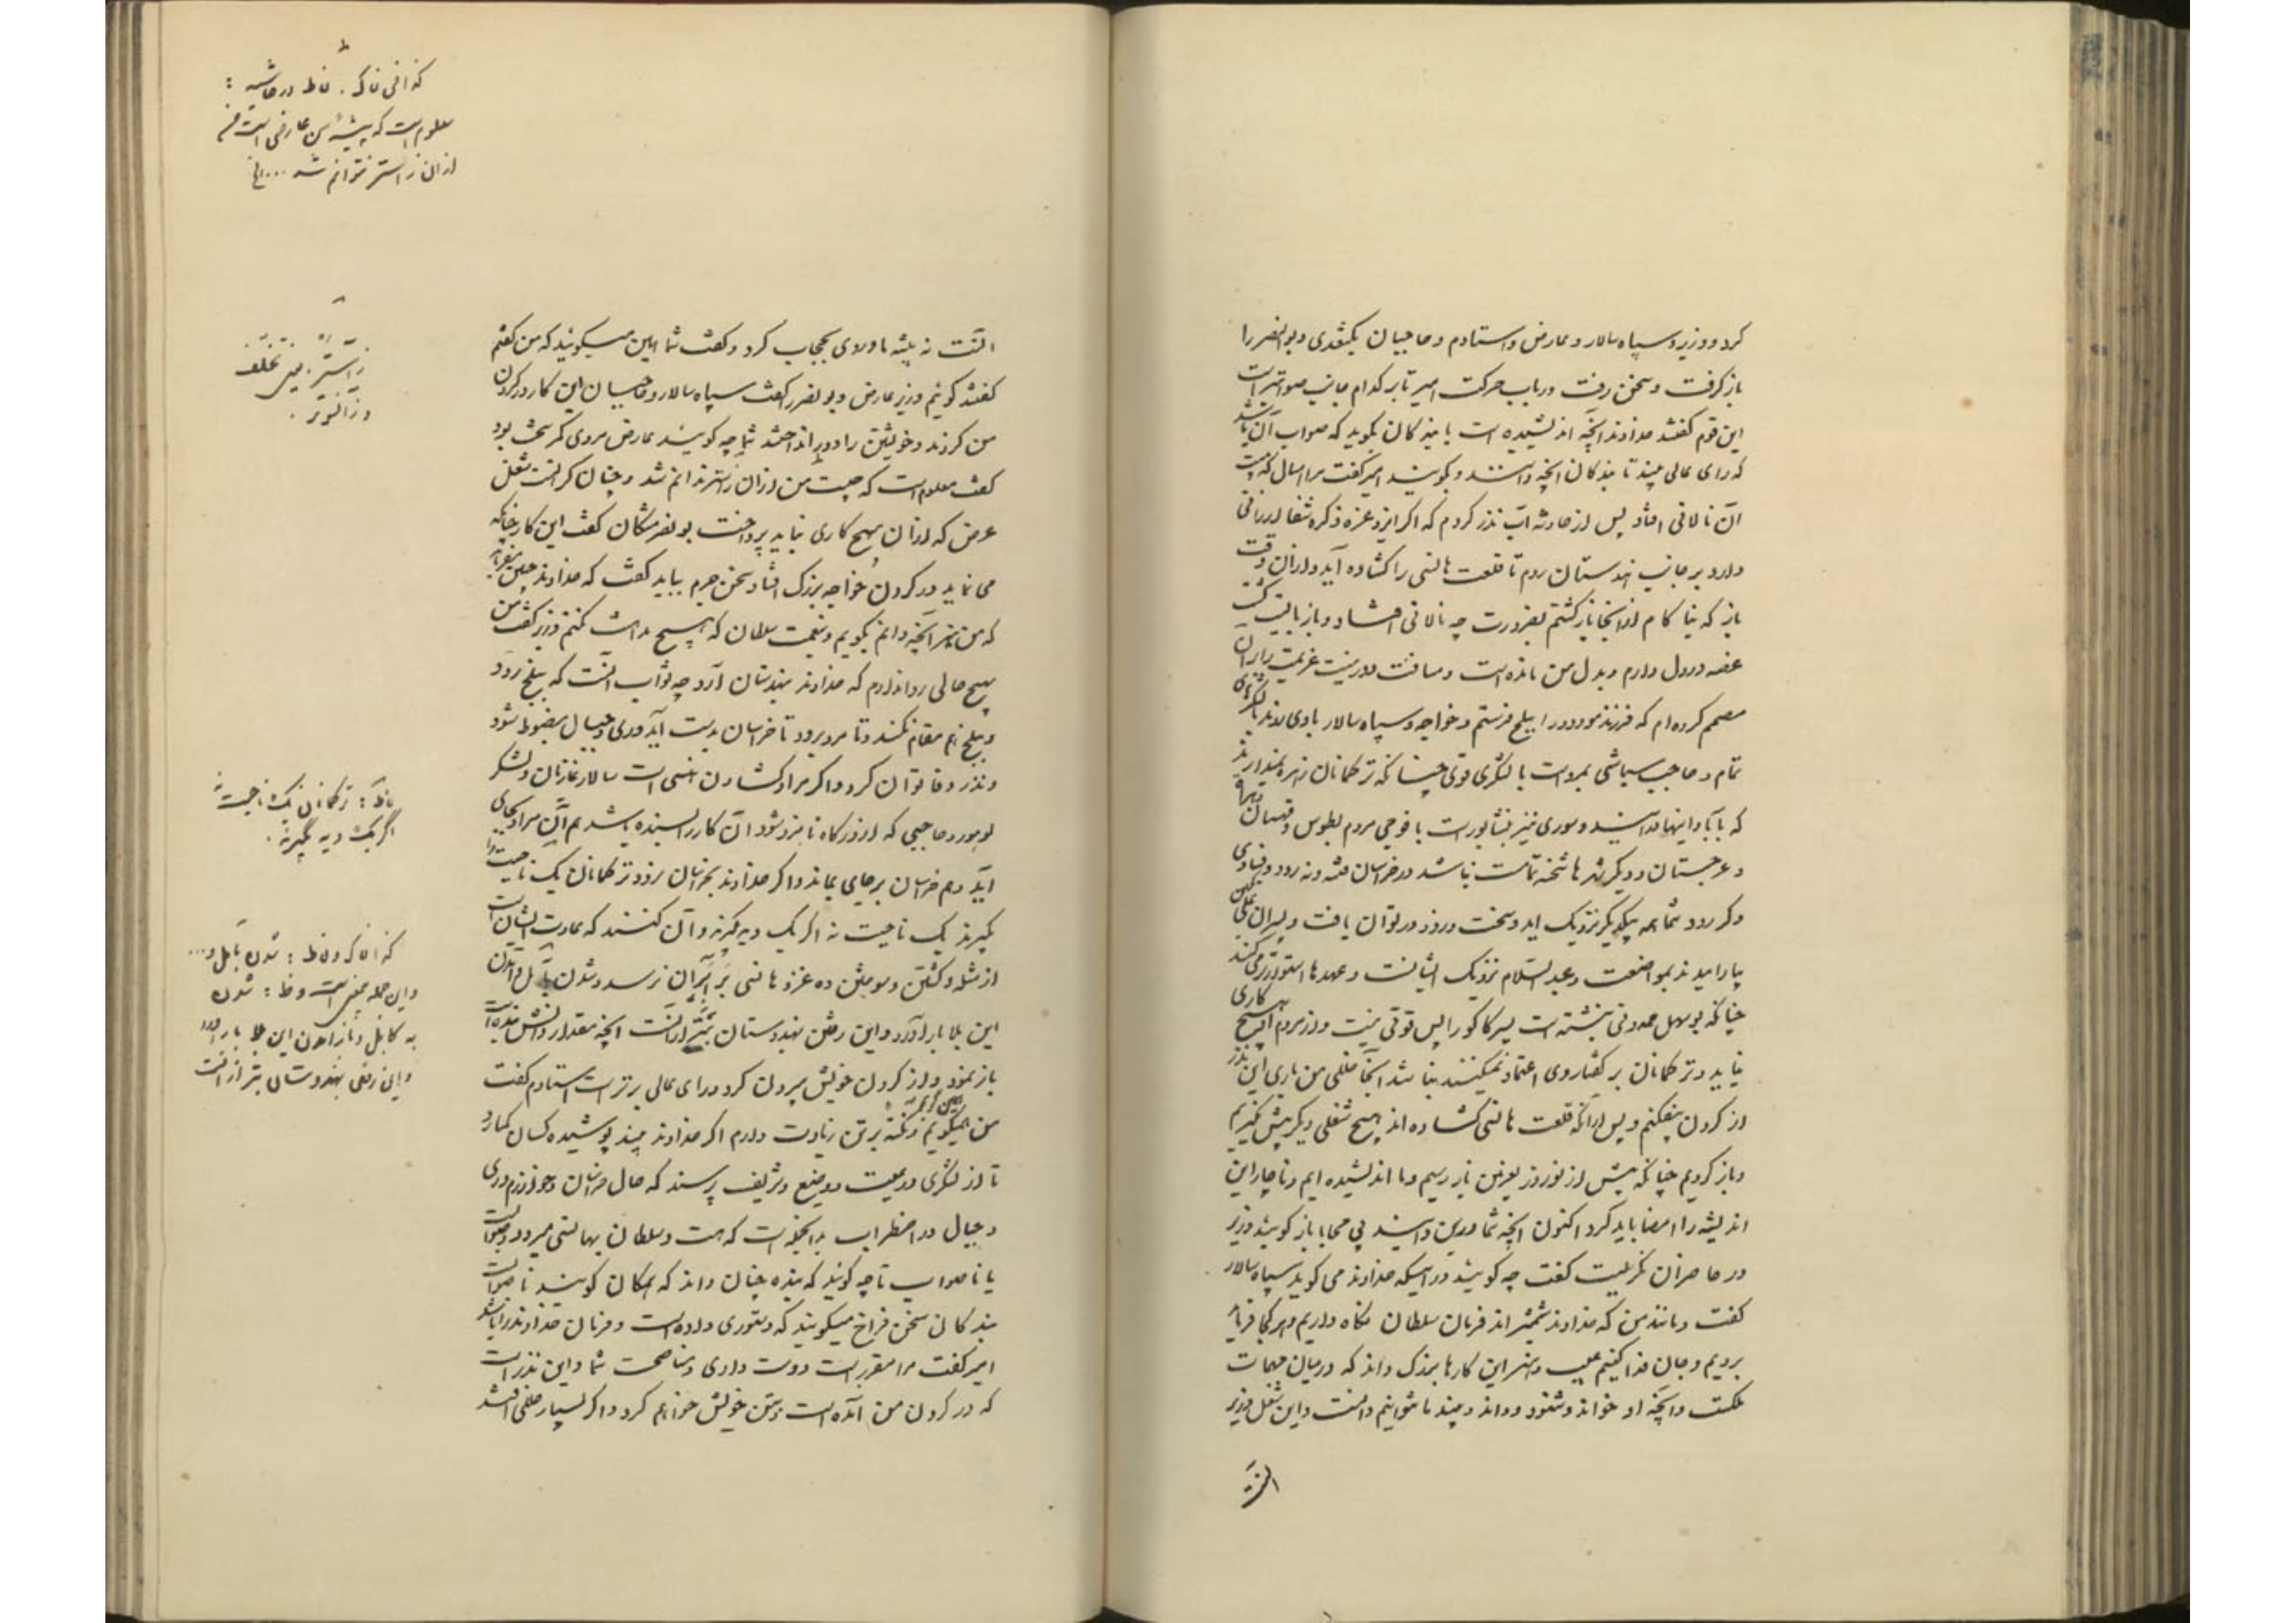 کرد و وزیر و سپاه سالار و عارض و استادم و حاجبان بکتغدی و بوالنضر را
باز گرفت و سخن رفت در باب حرکت امیر تا بر کدام جانب صوابتر است
این قوم گفتند خداوند آنچه اندیشیده است با بندگان بگوید که صواب آن باشد
که رای عالی بیند تا بندگان آنچه دانند بگویند امیر گفت مرا امسال که
آن نالانی افتاد پس از حادثه آب نذر کردم که اگر ایزد عز ذکره شفا ارزانی
دارد بر جانب هندوستان روم تا قلعت هانسی را گشاده آید و از آن وقت
باز که بنا کام از آنجا باز گشتم بضرورت چه نالانی افتاد و باز بایست گشت
غصه در دل دارم و بدل من مانده است و مسافت دور نیست عزیمت را بر آن
مصمم کرده ام که فرزند مودود را ببلخ فرستم و خواجه و سپاه سالار با وی روند با لشکرهای
تمام و حاجب سباشی بمرو است با لشکری قوی چنانکه ترکمانان زهره نمیدارند
که بآبادانیها درآیند و سوری نیز بنشابور است با فوجی مردم بطوس و قهستان
و غرجستان و دیگر شهرها شحنه تمامست نباشد در خراسان فتنه و نه رود و فسادی
و گر رود شما همه بیکدیگر نزدیک اید و سخت و زود در توان یافت و پسران علی تگین
بیارامیدند بمواضعت و عبدالسلام نزدیک ایشانست و عهدها استوارتر می کند
چنانکه بوسهل حمدونی نبشته است پسر کاکو را بس قوتی نیست و از مردم او هیچ کاری
نیاید و ترکمانان بر گفتار وی اعتماد نمیکنند بنا شد آنجا خللی من باری این نذر
از گردن بیفکنم و پس از آنکه قلعت هانسی گشاده اند هیچ شغلی دیگر پیش نگیریم
و باز گردیم چنانکه پیش از نوروز بغزنین باز رسیم و ما اندیشیده ایم و ناچار این
اندیشه را امضا باید کرد اکنون آنچه شما درین دانید بی محابا باز گویید وزیر
در حاضران نگریست گفت چه گویید در اینکه خداوند می گوید سپاه سالار
گفت و مانند من که خداوند شمشیراند فرمان سلطان نگاه داریم و هر کجا فرماید
برویم و جان فدا کنیم عیب و هنر این کارها بزرگ داند که در میان مهمات
ملکست و آنچه او خواند و شنود و داند و بیند ما نتوانیم دانست و این شغل وزیر
کذا فی ناک. ناط در حاشیه :
معلوم است که پیشه من عارضی است
از آن زاستر نتوانم شد ... الخ
زآنسوتر .
ناک : ترکمانان یک ناحیت نه
اگر یک دیه بگیرند .
و این جمله
به کابل و باز آمدن این بلا بار آورد
و این رفتن بهندوستان بتر از آنست
آنست نه پیشه ما و روی بحجاب کرد و گفت شما این میگوئید که من گفتم
گفتند گوئیم وزیر عارض و بونصر را گفت سپاه سالار و حاجبان این کار در گردن
من کردند و خویشتن را دور انداختند شما چه گویند عارض مردی کم سخن بود
گفت معلومست که چیست من از آن زاستر ندانم شد و چنان گرانست شغل
عرض که از آن بهیچ کاری نباید پرداخت بونصر مشکان گفت این کار چنانکه
می نماید در گردن خواجه بزرگ افتاد سخن جزم بباید گفت که خداوند چنین میفرماید
که من نیز آنچه دانم بگویم و بنعمت سلطان که هیچ مداهنت نکنم وزیر گفت من
بهیچ حالی روا ندارم که خداوند بهندوستان رود چه ثواب آنست که ببلخ رود
و ببلخ هم مقام نکند و تا مرو برود تا خراسان بدست آید و ری و جبال مضبوط شود
و نذر وفا توان کرد و اگر مراد گشادن هانسی است سالار غازیان و لشکر
لوهور و حاجبی که از درگاه نامزد شود آن کار را بسنده باشد هم آن مراد بجای
آید و هم خراسان بر جای بماند و اگر خداوند بخراسان نرود و ترکمانان یک ناحیت را
بگیرند یک ناحیت نه اگر یک دیه بگیرند و آن کنند که عادت ایشان است
از مثله و کشتن و سوختن ده غزو هانسی برابر آن نرسد و شدن بآمل و آمدن
این بلا بار آورد و این رفتن بهندوستان بتر از آنست آنچه مقدار دانش بنده است
باز نمود و از گردن خویش بیرون کرد و رای عالی برتر است استادم گفت
من همین گویم و نکته بر تن زیادت دارم اگر خداوند بیند پوشیده کسان گمارد
تا از لشکری و رعیت و وضیع و شریف پرسند که حال خراسان و خوارزم و ری
و جبال در اضطراب بدانجمله است که هست و سلطان بهانسی میرود صوابست
یا ناصواب تا چه گویند که بنده چنان داند که همگان گویند ناصوابست
بندگانی سخن فراخ میگویند که دستوری داده است و فرمان خداوند را باشد
امیر گفت مرا مقرر است دوست داری و مناصحت شما و این نذر است
که در گردن من آمده است و بتن خویش خواهم کرد و اگر بسیار خللی افتد